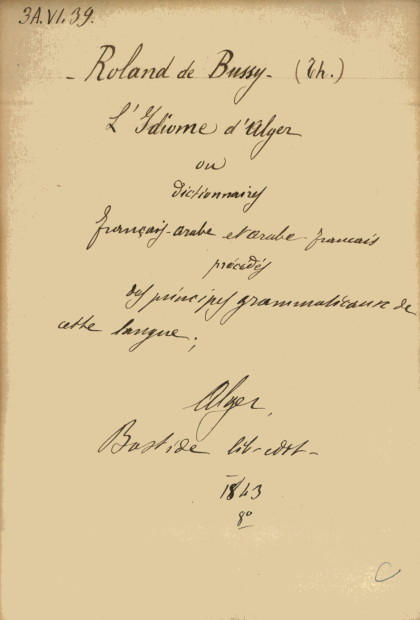 3A.VI.39.
- Roland de Bussy - (Th.)
L'Idiome d'Alger
ou
dictionnaires
français-arabe et arabe-français
précédés
des principes grammaticaux de
cette langue ;
Alger,
Bastide lib-édit-
1843
8°
C